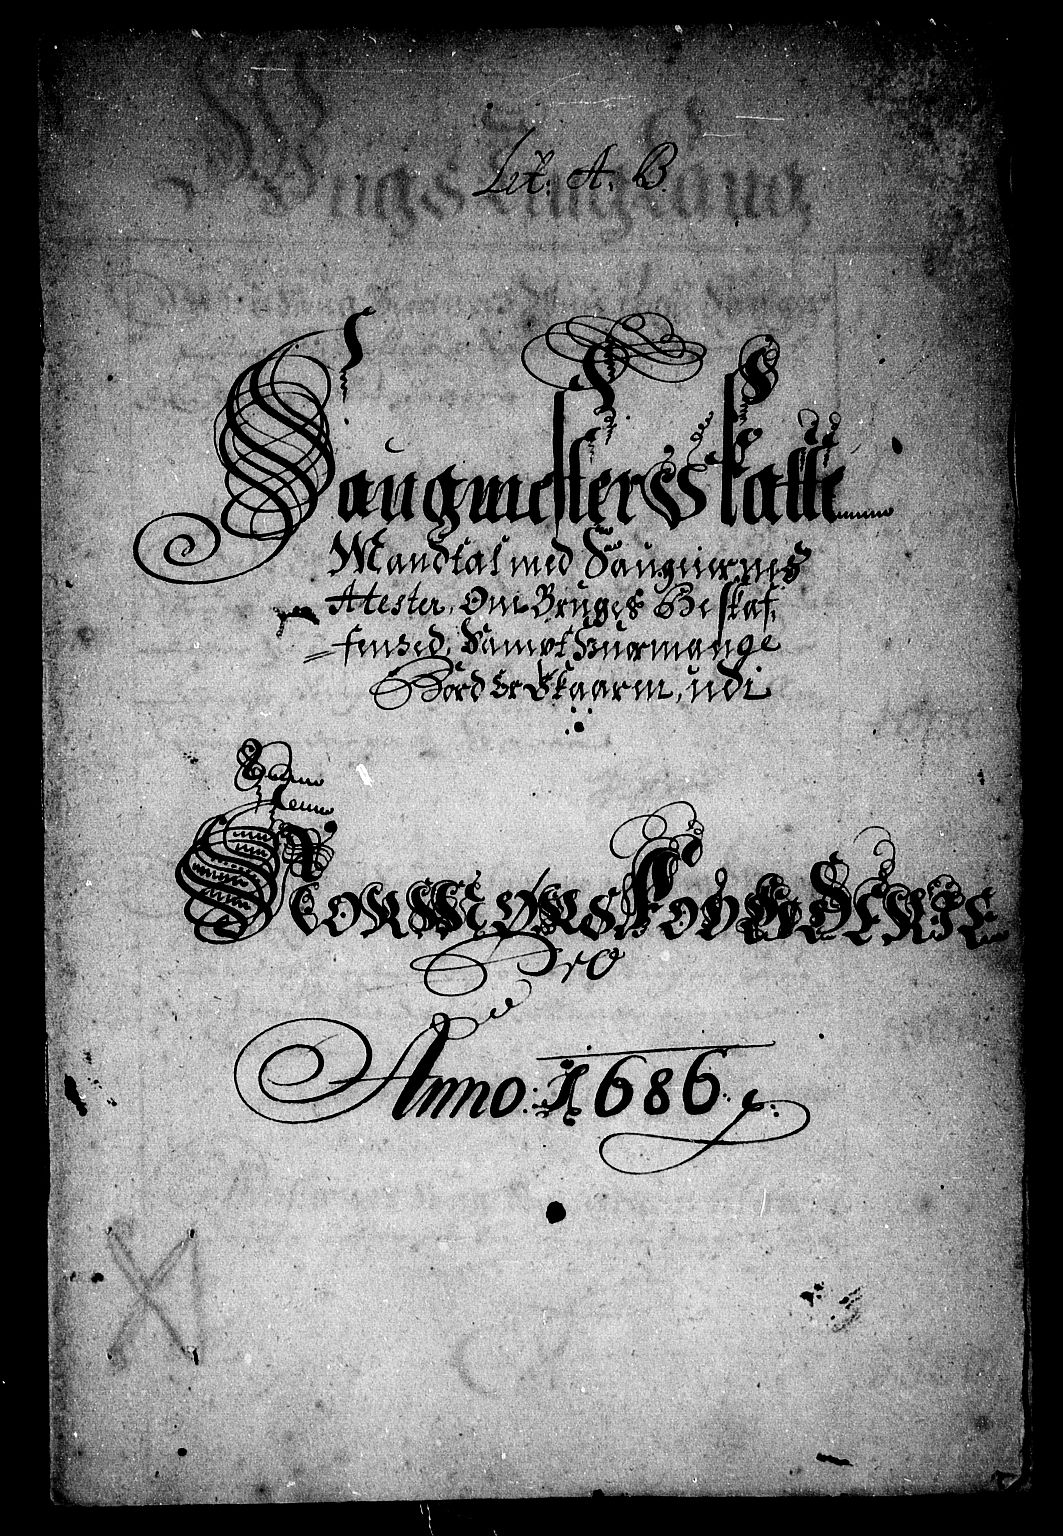 Lit. A. B.
Saugmesters Skatt
Mandtal med Saugeiernes
Atester, Om Bruges Beskaf,
fenhed, Sampt Huormange
Bord Er Skaarne, udi
Pro
Anno 1686